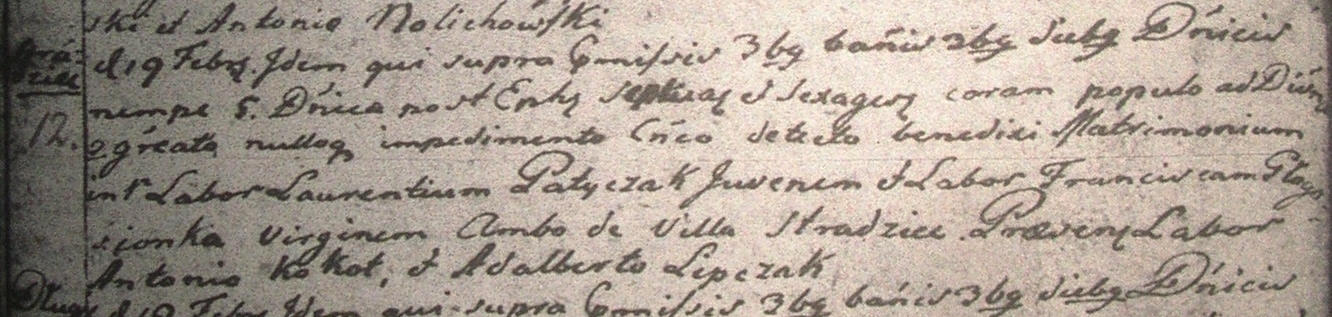 ski et Antonio Nolichowski
d 19 Febry. Idem qui supra pmissis 3bg bañis 3bg diebg Dñicis
nempe 5. Dñica post Ephs Septuag et Sexages coram populo ad Divin
12. ggreato nulloq impedimento Cñco detecto benedixi Matrimonium
intr Labor Laurentium Patyczak Juvenem et Labor Franciscam
sionka Virginem Ambo de Villa Stradzice Præsens Labor
Antonio Kokot, et Adalberto Lepczak
Dlug d 19 Febry Idem qui supra pmissis 3bg bañis 3bg diebg Dñicis